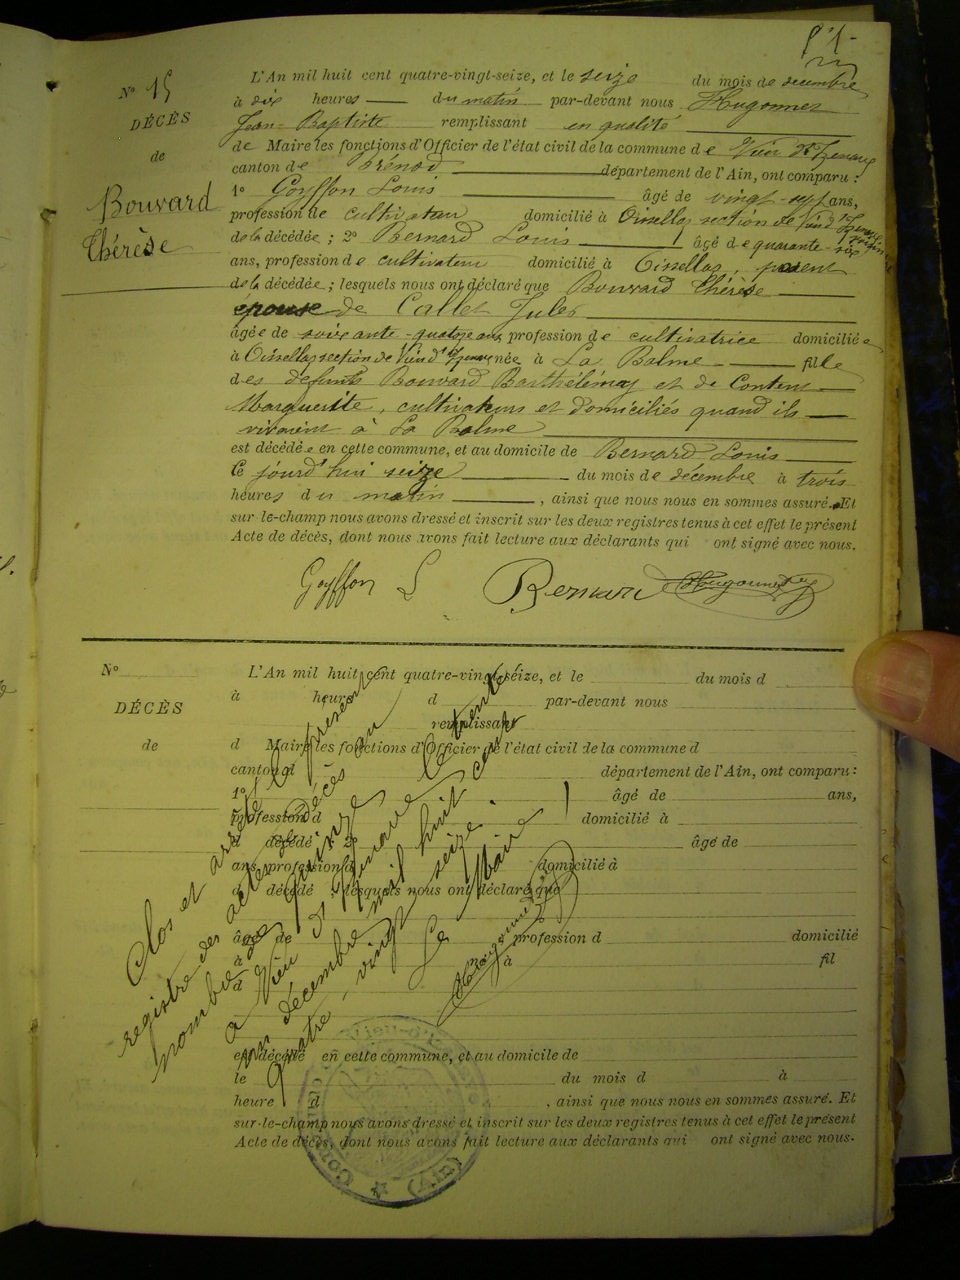 51-
N° 15
DÉCÈS
de
Bouvard
Thérèse
L'An mil huit cent quatre-vingt-seize, et le seize du mois de décembre
à dix heures du matin par-devant nous Hugonnet
Jean-Baptiste remplissant en qualité
de Maire les fonctions d'Officier de l'état civil de la commune de Vieu d'Izenave
canton de Brénod département de l'Ain, ont comparu :
1° Goyffon Louis âgé de vingt-sept ans,
profession de cultivateur domicilié à Oisselas section de Vieu d'Izenave
de la décédée ; 2° Bernard Louis âgé de quarante-six
ans, profession de cultivateur domicilié à Oissellas, parent
de la décédée ; lesquels nous ont déclaré que Bouvard Thérèse
épouse de Callet Jules
âgée de soixante-quatorze ans, profession de cultivatrice domiciliée
à Oissellas section de Vieu d'Izenave née à La Balme fille
des défunts Bouvard Barthélémy et de
Marguerite, cultivateurs et domiciliés quand ils
vivaient à La Balme
est décédée en cette commune, et au domicile de Bernard Louis
Ce jourd'hui seize du mois de décembre à trois
heures du matin , ainsi que nous nous en sommes assuré. Et
sur-le-champ nous avons dressé et inscrit sur les deux registres tenus à cet effet le présent
Acte de décès, dont nous avons fait lecture aux déclarants qui ont signé avec nous.
Goyffon L Bernard Hugonnet
N°
DÉCÈS
de
L'An mil huit cent quatre-vingt-seize, et le du mois d
à heure d par-devant nous
remplissant
d Maire les fonctions d'Officier de l'état civil de la commune d
canton d département de l'Ain, ont comparu :
1° âgé de ans,
profession d domicilié à
d décédé 2° âgé de
ans, profession d domicilié à
d décédé ; lesquels nous ont déclaré que
âgé de profession d domicilié
à n à fil
d
est décédé en cette commune, et au domicile de
le du mois d à
heure d , ainsi que nous nous en sommes assuré. Et
sur-le-champ nous avons dressé et inscrit sur les deux registres tenus à cet effet le présent
Acte de décès, dont nous avons fait lecture aux déclarants qui ont signé avec nous.
Clos et arrêté le présent
registre des actes de décès au
nombre de quinze
à Vieu d'Izenave le trente
un décembre mil huit cent
quatre-vingt seize.
Le Maire
Hugonnet
Commune de Vieu-d'Izenave
(Ain)